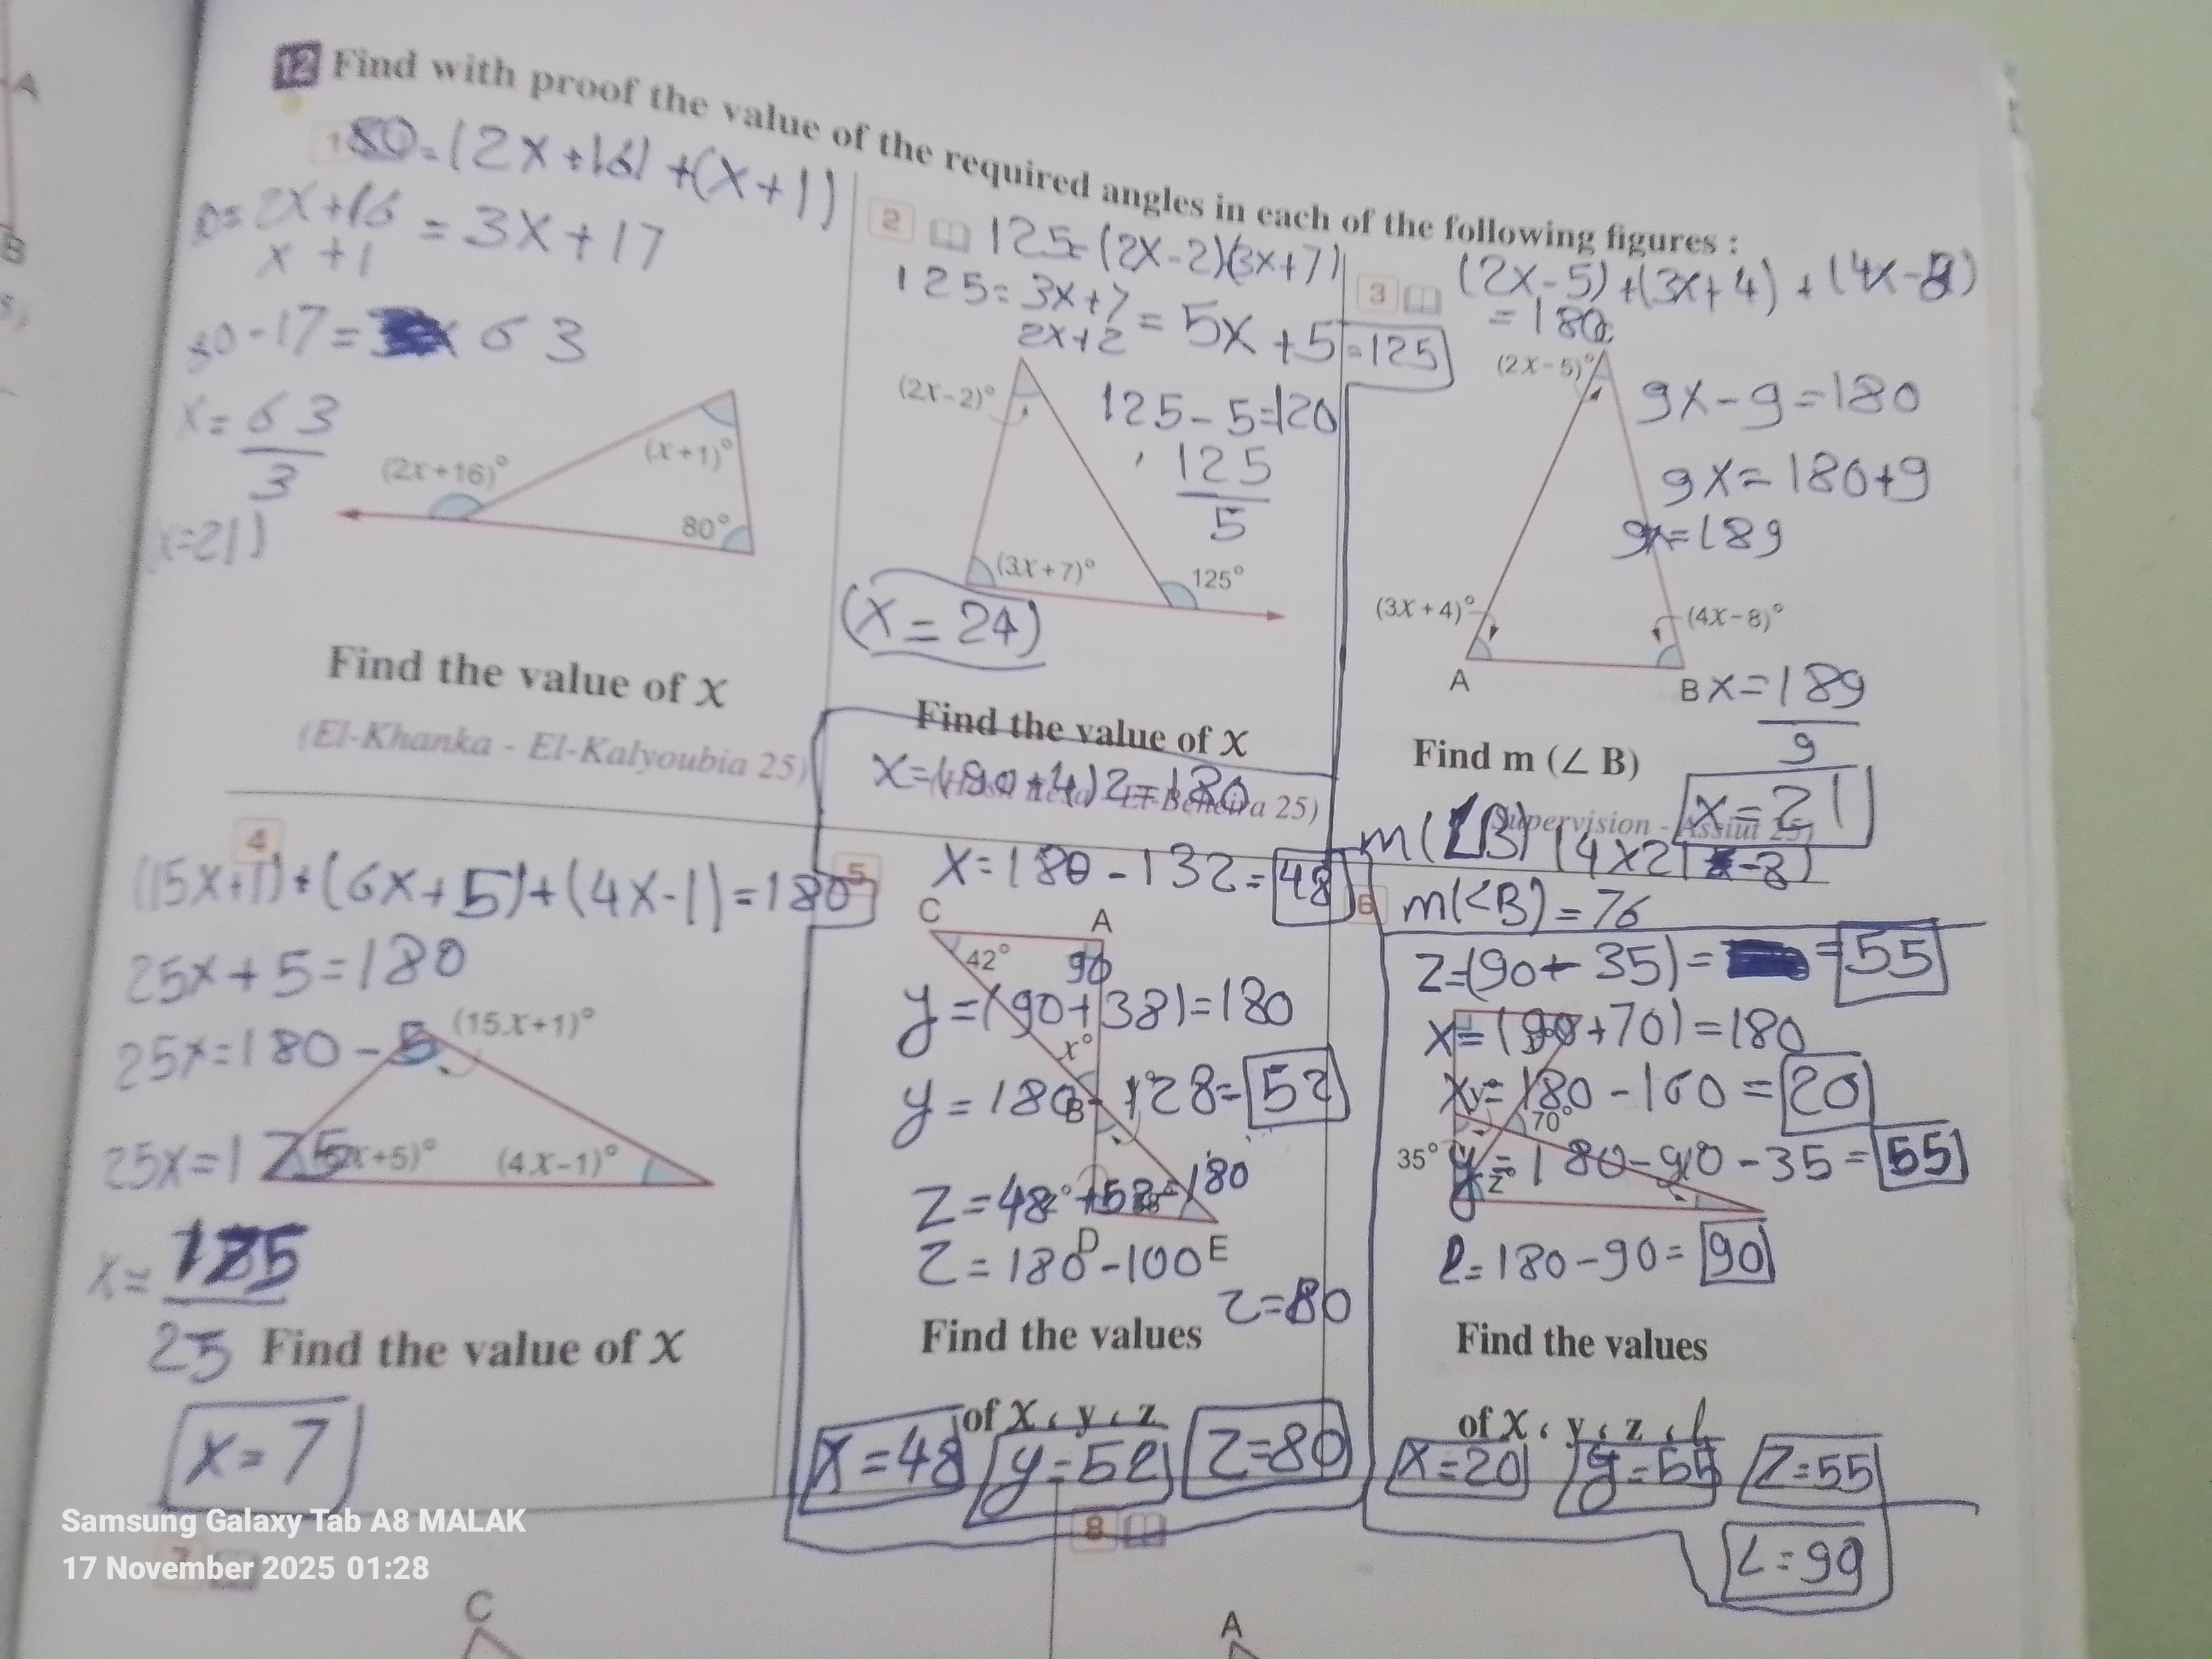 12 Find with proof the value of the required angles in each of the following figures :
1
80=(2x+16)+(x+1)
2x+16
x+1
=3x+17
80-17=63
x=63
3
(x=21)
(2x+16)°
(x+1)°
80°
Find the value of x
(El-Khanka - El-Kalyoubia 25)
2
125=(2x-2)(3x+7)
125=3x+7
2x+2
=5x+5=125
(2x-2)°
125-5=120
125
5
(3x+7)°
125°
(x=24)
Find the value of x
25)
3
(2x-5)+(3x+4)+(4x-8)
=180
(2x-5)°
9x-9=180
9x=180+9
9x=189
(3x+4)°
(4x-8)°
A
B
x=189
9
Find m (∠ B)
x=21
Supervision - Assiut 25)
m(∠B) (4x21-8)
m(<B)=76
4
(15x+1)+(6x+5)+(4x-1)=180
25x+5=180
25x=180-5
(15x+1)°
25x=175
x+5)°
(4x-1)°
x=175
25
Find the value of x
x=7
5
x=(90+4)2=180
x=180-132=48
C
A
42°
90
y=(90+38)=180
x°
y=180-128=52
B
z=48+52=180
D
E
z=180-100
z=80
Find the values
of x, y, z
x=48
y=52
z=80
6
z=(90+35)=55
x=(90+70)=180
x=180-160=20
y°
70°
35°
y=180-90-35=55
z°
l=180-90=90
Find the values
of x, y, z, l
x=20
y=55
z=55
L=90
7
8
C
A
Samsung Galaxy Tab A8 MALAK
17 November 2025 01:28